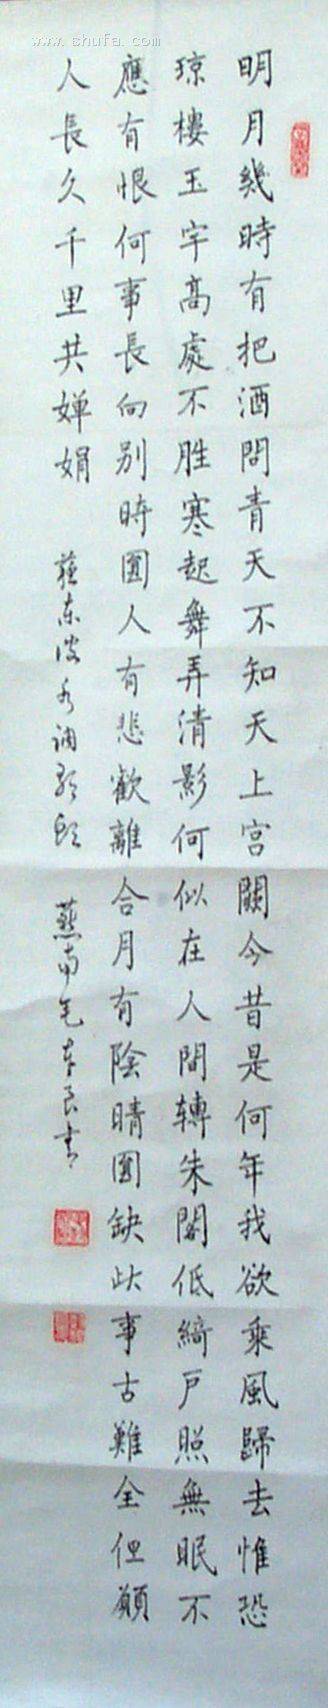 www.shufa.com
明月幾時有把酒問青天不知天上宮闕今昔是何年我欲乘風歸去惟恐
琼樓玉宇高處不胜寒起舞弄清影何似在人間轉朱閣低綺戶照無眠不
應有恨何事長向別時圓人有悲歡離合月有陰晴圓缺此事古難全但願
人長久千里共婵娟 蘇東坡水調歌頭 燕南毛良書